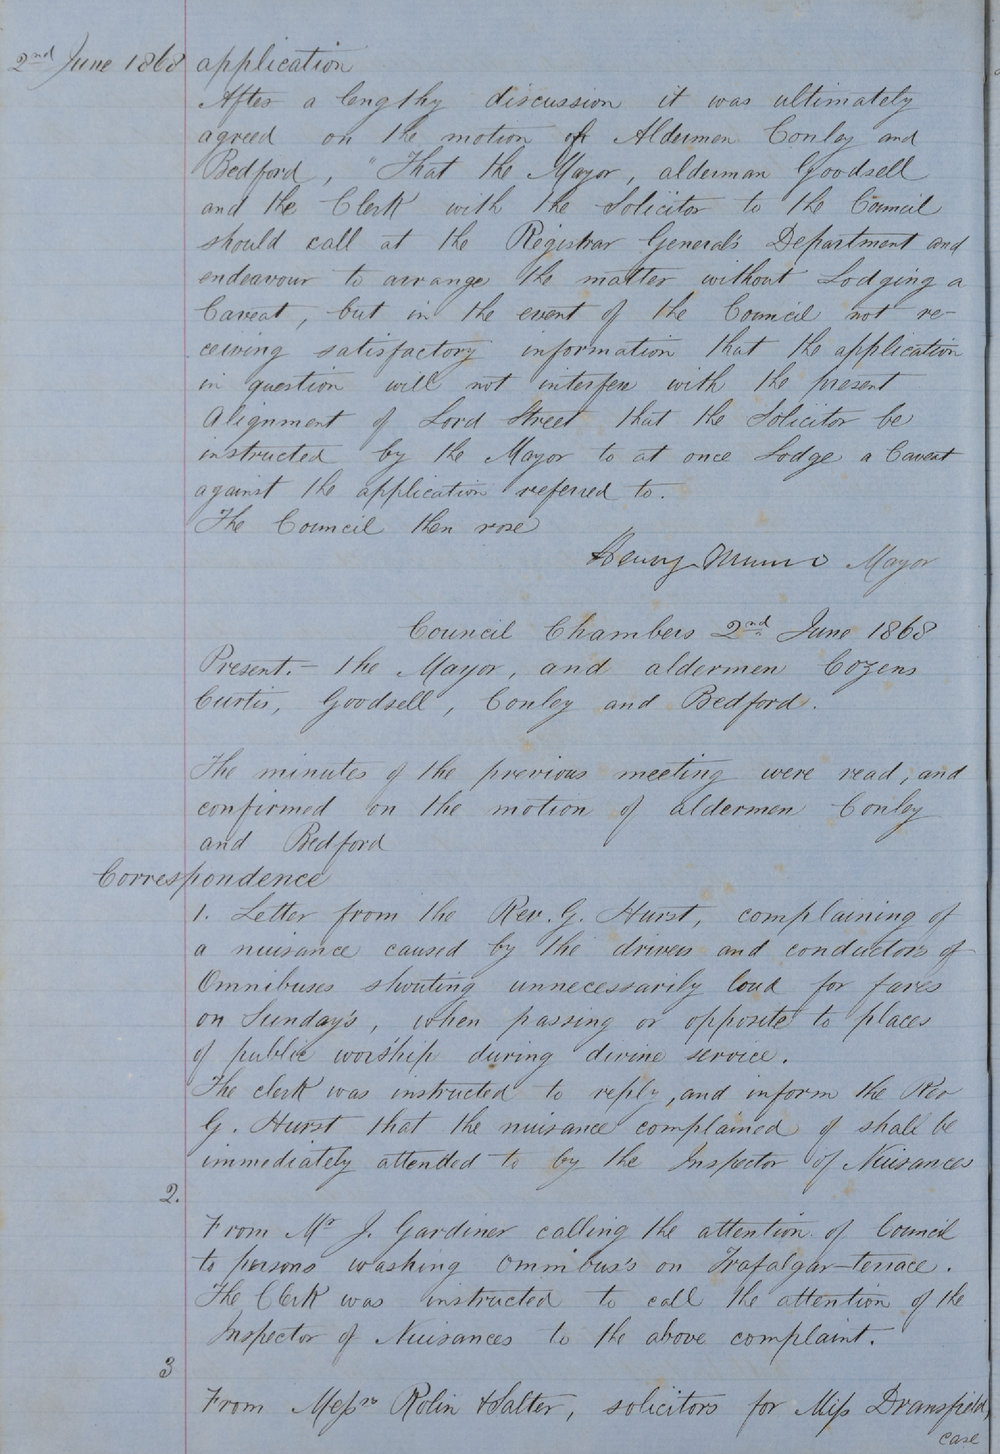 2nd June 1868 application
After a lengthy discussion it was ultimately
agreed on the motion of Aldermen Conley and
Bedford, "That the Mayor, alderman Goodsell
and the Clerk with the Solicitor to the Council
should call at the Registrar General's Department and
endeavour to arrange the matter without Lodging a
Caveat, but in the event of the Council not re-
ceiving satisfactory information that the application
in question will not interfere with the present
Alignment of Lord Street that the Solicitor be
instructed by the Mayor to at once Lodge a Caveat
against the application referred to.
The Council then rose
Henry Munro Mayor
Council Chambers 2nd June 1868
Present.- the Mayor, and aldermen Cozens
Curtis, Goodsell, Conley and Bedford.
The minutes of the previous meeting were read, and
confirmed on the motion of aldermen Conley
and Bedford
Correspondence
1. Letter from the Rev. G. Hurst, complaining of
a nuisance caused by the drivers and conductors of
Omnibuses shouting unnecessarily loud for fares
on Sunday's, when passing or opposite to places
of public worship during divine service.
The clerk was instructed to reply, and inform the Rev
G. Hurst that the nuisance complained of shall be
immediately attended to by the Inspector of Nuisances
2.
From Mr J. Gardiner calling the attention of Council
to persons washing Omnibus's on Trafalgar-terrace.
The Clerk was instructed to call the attention of the
Inspector of Nuisances to the above complaint.
3
From Messrs Rolin & Salter, solicitors for Miss Dransfield,
case